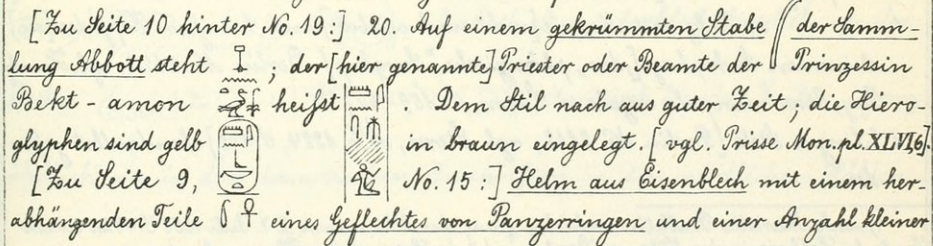 [Zu Seite 10 hinter No. 19:] 20. Auf einem gekrümmten Stabe der Samm-
lung Abbott steht ; der [hier genannte] Priester oder Beamte der Prinzessin
Bekt-amon heifst Dem Stil nach aus guter Zeit; die Hiero-
glyphen sind gelb in braun eingelegt. [vgl. Prisse Mon. pl. XLVI,6].
[Zu Seite 9, No. 15:] Helm aus Eisenblech mit einem her-
abhängenden Teile eines Geflechtes von Panzerringen und einer Anzahl kleiner